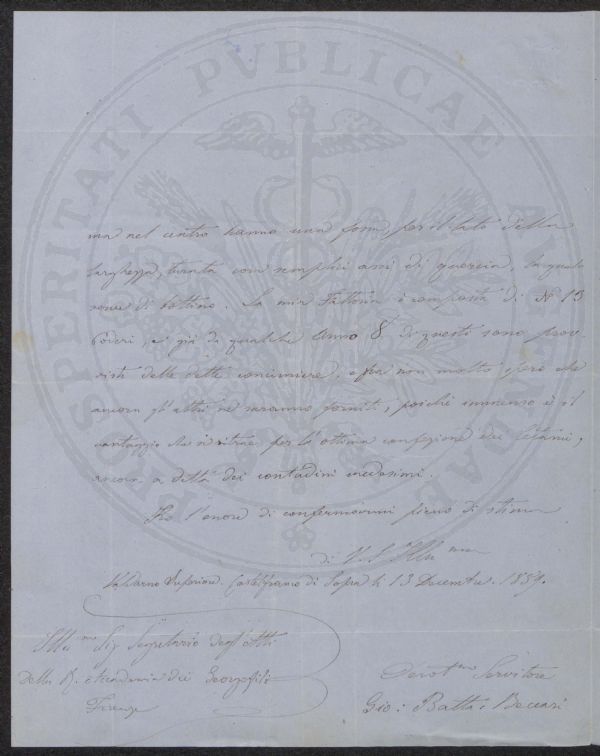 ma nel centro hanno una forma, per il lato della
larghezza, turata con semplici assi di quercia, la quale
serve di bottino. La mia Fattoria è composta di No 15
Poderi, e già da qualche Anno 8 di questi sono prov-
visti delle dette concimiere, e fra non molto spero che
ancora gl'altri ne saranno forniti, poiché immenso è il
vantaggio che si ritrae per l'ottima confezione dei Letami,
ancora a detta dei contadini medesimi.
Ho l'onore di confermarmi pieno di stima
di V. S. Illma
Valdarno Superiore. Castelfranco di Sopra li 13 Decembre 1857.
Illmo Sig. Segretario degl'Atti
della R. Accademia dei Georgofili
Firenze
Devotmo Servitore
Gio: Batta Beccari
PROSPERITATI PVBLICAE AVGENDAE